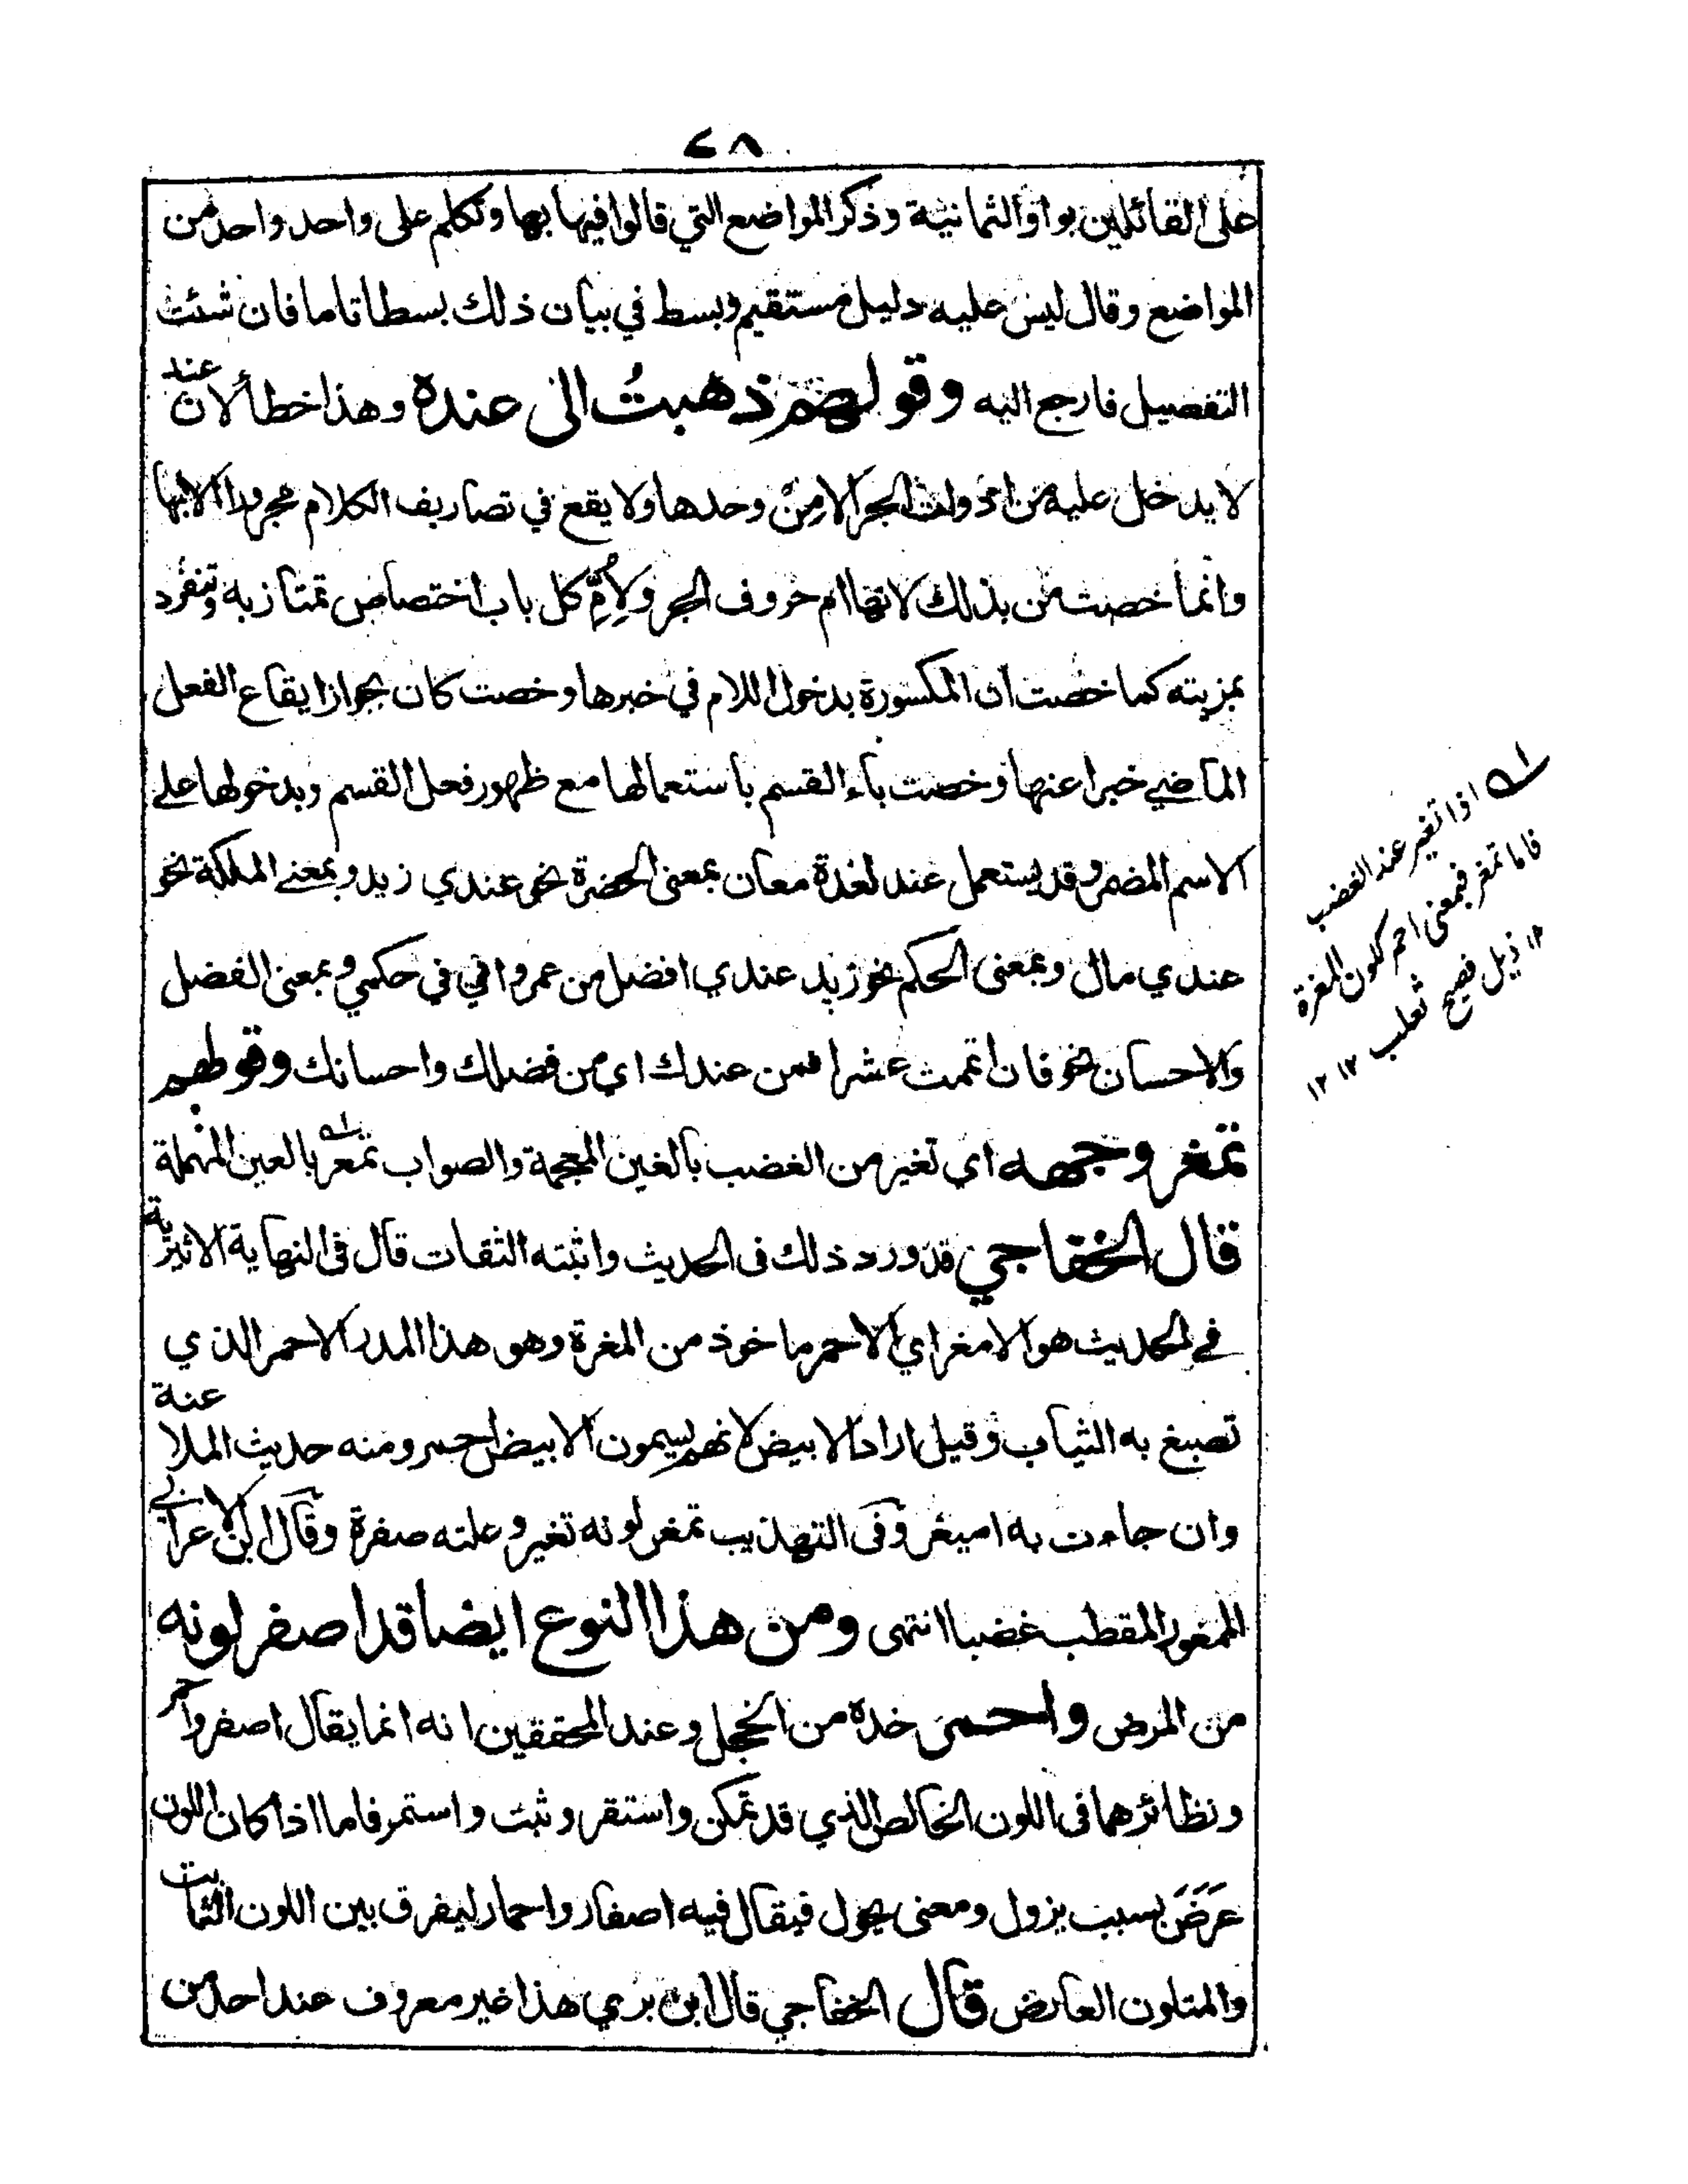 ٢٨
على القائلين بواو الثمانية وذكر المواضع التي قالوا فيها بها وتكلم على واحد واحد من
المواضع وقال ليس عليه دليل مستقيم وبسط في بيان ذلك بسطا تاما فان شئت
التفصيل فارجع اليه وقولهم ذهبتُ الى عنده وهذا خطأ لان عند
لا يدخل عليه من ادوات الجر الا مِنْ وحدها ولا يقع في تصاريف الكلام مجرورا الا بها
وانما خصت من بذلك لانها ام حروف الجر ولاُمِّ كل باب اختصاص تمتاز به وتنفرد
بمزيته كما خصت ان المكسورة بدخول اللام في خبرها وخصت كان بجواز ايقاع الفعل
الماضي خبرا عنها وخصت باء القسم باستعمالها مع ظهور فعل القسم وبدخولها على
الاسم المضمر وقد يستعمل عند لعدة معان بمعنى الحضرة نحو عندي زيد وبمعنى الملكة نحو
عندي مال وبمعنى الحكم نحو زيد عندي افضل من عمرو اي في حكمي وبمعنى الفضل
والاحسان نحو فان اتممت عشرا فمن عندك اي من فضلك واحسانك وقولهم
تمغر وجهه اي تغير من الغضب بالغين المعجمة والصواب تمعر بالعين المهملة
قال الخفاجي قد ورد ذلك في الحديث واثبته الثقات قال في النهاية الاثيرية
في الحديث هو الامغر اي الاحمر ماخوذ من المغرة وهو هذا المدر الاحمر الذي
تصبغ به الثياب وقيل اراد الابيض لانهم يسمون الابيض احمر ومنه حديث الملاعنة
وان جاءت به اميغر وفي التهذيب تمغر لونه تغير وعلته صفرة وقال ابن الاعرابي
الممغور المقطب غضبا انتهى ومن هذا النوع ايضا قد اصفر لونه
من المرض واحمر خده من الخجل وعند المحققين انه انما يقال اصفر واحمر
ونظائرهما في اللون الخالص الذي قد تمكن واستقر وثبت واستمر فاما اذا كان اللون
عَرَضَ بسبب يزول ومعنى يحول فيقال فيه اصفار واحمار ليفرق بين اللون الثابت
والمتلون العارض قال الخفاجي قال ابن بري هذا غير معروف عند احد من
اذا تغير عند الغضب
فاما تمغر فبمعنى احمر كلون المغرة
١٢ ذيل فصيح ثعلب ١٢ ١٢